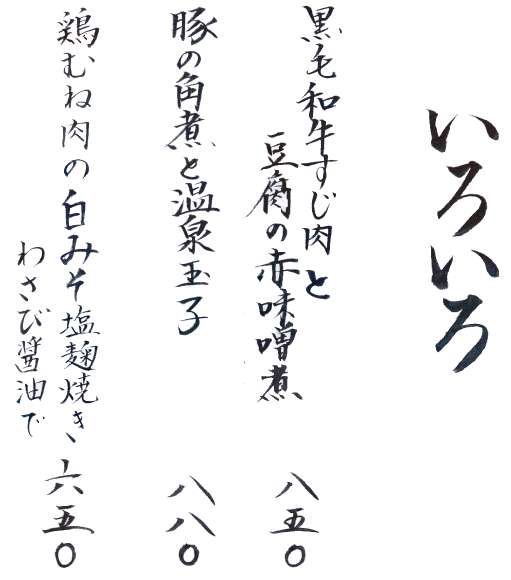 いろいろ
黒毛和牛すじ肉と
豆腐の赤味噌煮
八五〇
豚の角煮と温泉玉子
八八〇
鶏むね肉の白みそ塩麹焼き、
わさび醤油で
六五〇